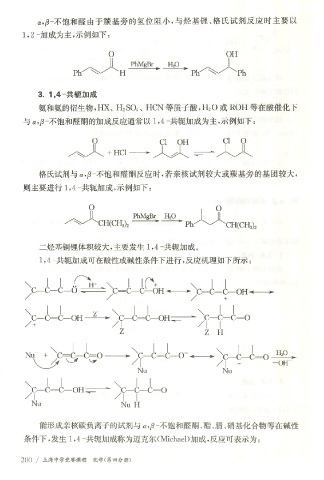 α,β-不饱和醛由于羰基旁的氢位阻小,与烃基锂、格氏试剂反应时主要以
1,2-加成为主,示例如下:
O OH
Ph H PhMgBr H₂O Ph Ph
3. 1,4-共轭加成
氨和氨的衍生物,HX、H₂SO₄、HCN等质子酸,H₂O或ROH等在酸催化下
与α,β-不饱和醛酮的加成反应通常以1,4-共轭加成为主,示例如下:
O Cl OH Cl O
+HCl
格氏试剂与α,β-不饱和醛酮反应时,若亲核试剂较大或羰基旁的基团较大,
则主要进行1,4-共轭加成,示例如下:
O O
CH(CH₃)₂ PhMgBr H₂O Ph CH(CH₃)₂
二烃基铜锂体积较大,主要发生1,4-共轭加成。
1,4-共轭加成可在酸性或碱性条件下进行,反应机理如下所示:
C=C-C=O H⁺ C=C-C=OH C=C-C-OH
C-C=C-OH Z C-C=C-OH C-C-C=O
Z Z H
Nu + C=C-C=O C-C=C-O⁻ C-C-C=O H₂O
Nu Nu -OH⁻
C-C=C-OH C-C-C=O
Nu Nu H
能形成亲核碳负离子的试剂与α,β-不饱和醛酮、酯、腈、硝基化合物等在碱性
条件下,发生1,4-共轭加成称为迈克尔(Michael)加成,反应可表示为:
200 / 上海中学竞赛课程 化学(第四分册)